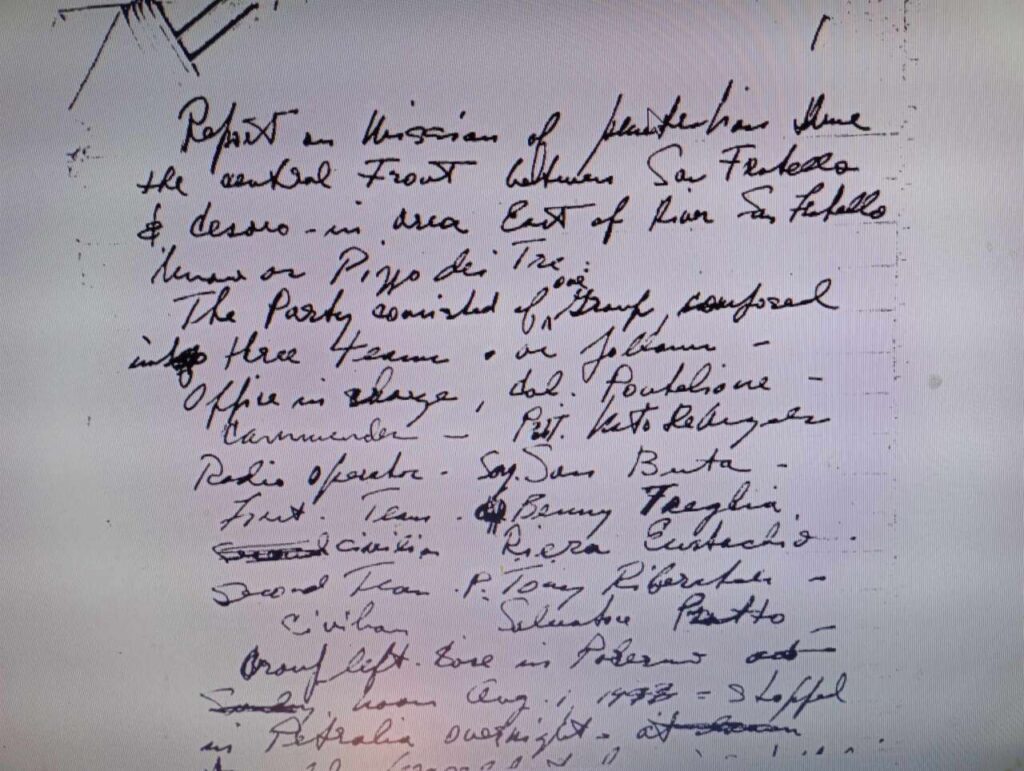 1
Report on Mission of penetration thru
the central Front between San Fratello
& Cesaro - in area East of River San Fratello
know as Pizzo dei Tre
The Party consisted of one Group, composed
into three teams. as follows -
Office in charge, Col. Pontelione -
Commander -
Radio operator - Sam Buta -
First. Team. Benny Treglia
civilian Riera Eustachio.
Second Team. P. Tony
Civilian Salvatore
Group left. base in Palermo
noon Aug. 1, = Stopped
in Petralia overnight. at